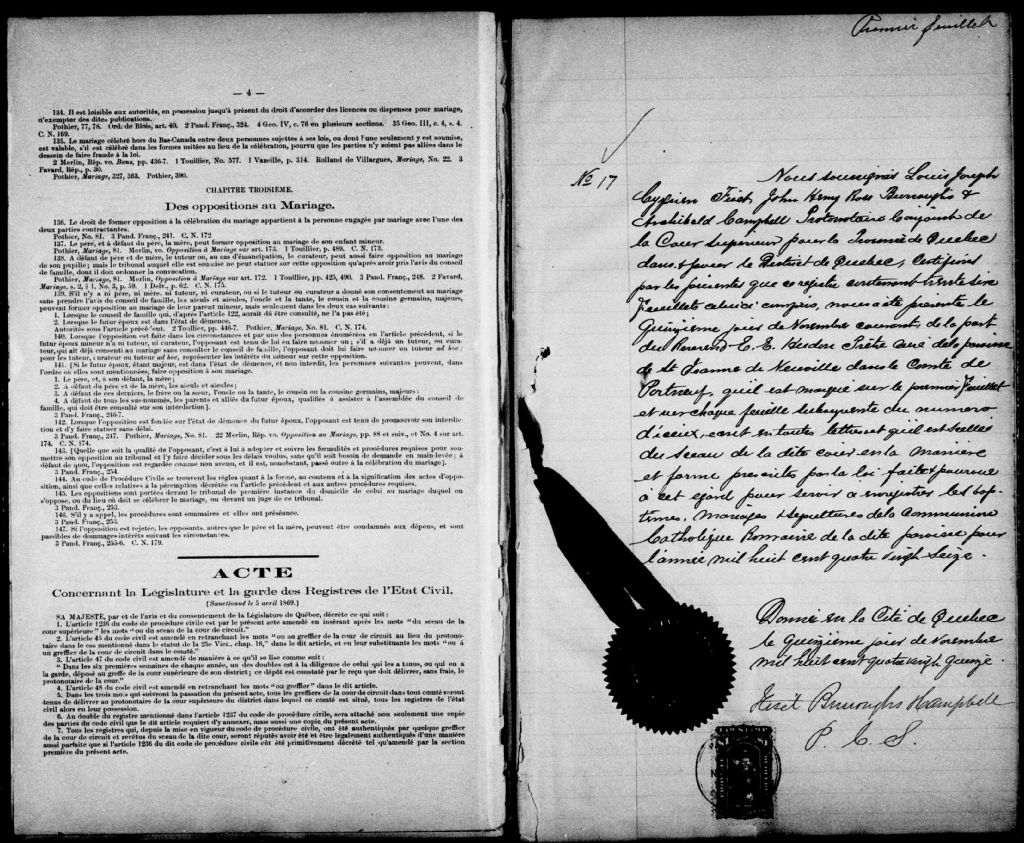 — 4 —
134. Il est loisible aux autorités, en possession jusqu'à présent du droit d'accorder des licences ou dispenses pour mariage,
d'exempter des dites publications.
Pothier, 77, 78. Ord. de Blois, art. 40. 2 Pand. Franç., 324. 4 Geo. IV, c. 76 en plusieurs sections. 35 Geo. III, c. 4, s. 4.
C. N. 169.
135. Le mariage célébré hors du Bas-Canada entre deux personnes sujettes à ses lois, ou dont l'une seulement y est soumise,
est valable, s'il est célébré dans les formes usitées au lieu de la célébration, pourvu que les parties n'y soient pas allées dans le
dessein de faire fraude à la loi.
2 Merlin, Rép. vo. Bans, pp. 436-7. 1 Touillier, No. 577. 1 Vazeille, p. 314. Rolland de Villargues, Mariage, No. 22. 3
Favard, Rép., p. 30.
Pothier, Mariage, 327, 363. Pothier, 390.
CHAPITRE TROISIÈME.
Des oppositions au Mariage.
136. Le droit de former opposition à la célébration du mariage appartient à la personne engagée par mariage avec l'une des
deux parties contractantes.
Pothier, No. 81. 3 Pand. Franç., 241. C. N. 172.
137. Le père, et à défaut du père, la mère, peut former opposition au mariage de son enfant mineur.
Pothier, Mariage, 81. Merlin, vo. Opposition à Mariage sur art. 173. 1 Touillier, p. 489. C. N. 173.
138. A défaut de père et de mère, le tuteur ou, au cas d'émancipation, le curateur, peut aussi faire opposition au mariage
de son pupille; mais le tribunal auquel elle est soumise ne peut statuer sur cette opposition qu'après avoir pris l'avis du conseil
de famille, dont il doit ordonner la convocation.
Pothier, Mariage, 81. Merlin, Opposition à Mariage sur art. 172. 1 Touillier, pp. 425, 490. 3 Pand. Franç., 248. 2 Favard,
Mariage, s. 2, § 1, No. 3, p. 59. 1 Delv., p. 62. C. N. 175.
139. S'il n'y a ni père, ni mère, ni tuteur, ni curateur, ou si le tuteur ou curateur a donné son consentement au mariage
sans prendre l'avis du conseil de famille, les aïeuls et aïeules, l'oncle et la tante, le cousin et la cousine germains, majeurs,
peuvent former opposition au mariage de leur parent mineur, mais seulement dans les deux cas suivants:
1. Lorsque le conseil de famille qui, d'après l'article 122, aurait dû être consulté, ne l'a pas été;
2. Lorsque le futur époux est dans l'état de démence.
Autorités sous l'article précédent. 2 Touillier, pp. 446-7. Pothier, Mariage, No. 81. C. N. 174.
140. Lorsque l'opposition est faite dans les circonstances et par une des personnes énumérées en l'article précédent, si le
futur époux mineur n'a ni tuteur, ni curateur, l'opposant est tenu de lui en faire nommer un; s'il a déjà un tuteur, ou cura-
teur, qui ait déjà consenti au mariage sans consulter le conseil de famille, l'opposant doit lui faire nommer un tuteur ad hoc,
pour les tuteur, curateur ou tuteur ad hoc, représenter les intérêts du mineur sur cette opposition.
141. [Si le futur époux, étant majeur, est dans l'état de démence, et non interdit, les personnes suivantes peuvent, dans
l'ordre où elles sont mentionnées, faire opposition à son mariage.
1. Le père, et, à son défaut, la mère;
2. A défaut du père et de la mère, les aïeuls et aïeules;
3. A défaut de ces derniers, le frère ou la sœur, l'oncle ou la tante, le cousin ou la cousine germains, majeurs;
4. A défaut de tous les sus-nommés, les parents et alliés du futur époux, qualifiés à assister à l'assemblée du conseil de
famille, qui doit être consulté sur son interdiction].
3 Pand. Franç., 246-7.
142. Lorsque l'opposition est fondée sur l'état de démence du futur époux, l'opposant est tenu de promouvoir son interdic-
tion et d'y faire statuer sans délai.
3 Pand. Franç., 247. Pothier, Mariage, No. 81. 22 Merlin, Rép. vo. Opposition au Mariage, pp. 88 et suiv., et No. 4 sur art.
174. C. N. 174.
143. [Quelle que soit la qualité de l'opposant, c'est à lui à adopter et suivre les formalités et procédures requises pour sou-
mettre son opposition au tribunal et l'y faire décider sous les délais voulus, sans qu'il soit besoin de demande en main-levée; à
défaut de quoi, l'opposition est regardée comme non avenue, et il est, nonobstant, passé outre à la célébration du mariage].
3 Pand. Franç., 254.
144. Au code de Procédure Civile se trouvent les règles quant à la forme, au contenu et à la signification des actes d'oppo-
sition, ainsi que celles relatives à la péremption décrétée en l'article précédent et aux autres procédures requises.
145. Les oppositions sont portées devant le tribunal de première instance du domicile de celui au mariage duquel on
s'oppose, ou du lieu où doit se célébrer le mariage, ou devant un juge de ce tribunal.
3 Pand. Franç., 253.
146. S'il y a appel, les procédures sont sommaires et elles ont préséance.
3 Pand. Franç., 253.
147. Si l'opposition est rejetée, les opposants, autres que le père et la mère, peuvent être condamnés aux dépens, et sont
passibles de dommages-intérêts suivant les circonstances.
3 Pand. Franç., 255-6. C. N. 179.
ACTE
Concernant la Législature et la garde des Registres de l'Etat Civil.
[Sanctionné le 5 avril 1869.]
SA MAJESTÉ, par et de l'avis et du consentement de la Législature de Québec, décrète ce qui suit:
1. L'article 1236 du code de procédure civile est par le présent acte amendé en insérant après les mots "du sceau de la
cour supérieure" les mots "ou du sceau de la cour de circuit."
2. L'article 45 du code civil est amendé en retranchant les mots "ou au greffier de la cour de circuit au lieu du protono-
taire dans le cas mentionné dans le statut de la 25e Vict., chap. 16," dans le dit article, et en leur substituant les mots "ou à
un greffier de la cour de circuit dans le comté."
3. L'article 47 du code civil est amendé de manière à ce qu'il se lise comme suit:
"Dans les six premières semaines de chaque année, un des doubles est à la diligence de celui qui les a tenus, ou qui en a
la garde, déposé au greffe de la cour supérieure de son district; ce dépôt est constaté par le reçu que doit délivrer, sans frais, le
protonotaire de la cour."
4. L'article 48 du code civil est amendé en retranchant les mots "ou greffier" dans le dit article.
5. Dans les trois mois qui suivront la passation du présent acte, tous les greffiers de la cour de circuit dans tout comté seront
tenus de délivrer au protonotaire de la cour supérieure du district dans lequel ce comté est situé, tous les registres de l'état
civil alors en leur possession.
6. Au double du registre mentionné dans l'article 1237 du code de procédure civile, sera attaché non seulement une copie
des parties du code civil que le dit article requiert d'y annexer, mais aussi une copie du présent acte.
7. Tous les registres qui, depuis la mise en vigueur du code de procédure civile, ont été authentiqués par quelque greffier
de la cour de circuit et revêtus du sceau de la dite cour, seront réputés avoir été et être légalement authentiqués d'une manière
aussi parfaite que si l'article 1236 du dit code de procédure civile eût été primitivement décrété tel qu'amendé par la section
première du présent acte.
Premier feuillet
No 17
Nous soussignés Louis Joseph
Cyprien Fiset John Henry Ross Burroughs &
Archibald Campbell Protonotaire Conjoint de
la Cour Supérieure pour la Province de Quebec
dans & pour le District de Quebec, Certifions
par les présentes que ce registre contenant trente six
Feuillets celui ci compris, nous a été présenté le
Quinzième jour de Novembre courant, de la part
du Révérend E. E. Hudon Prêtre Curé de la paroisse
de St Jeanne de Neuville dans le Comté de
Portneuf, qu'il est marqué sur le premier Feuillet
et sur chaque feuillet subséquent du numéro
d'iceux, écrit en toutes lettres et qu'il est scellé
du Sceau de la dite Cour en la Manière
et forme prescrites par la loi faite & pourvue
à cet égard pour servir à enregistrer les bap-
têmes, Mariages & Sépultures de la Communion
Catholique Romaine de la dite paroisse pour
l'année mil huit cent quatre vingt Seize.
Donné en la Cité de Quebec
le Quinzième jour de Novembre
mil huit cent quatre vingt Quinze.
Fiset Burroughs & Campbell
P. C. S.